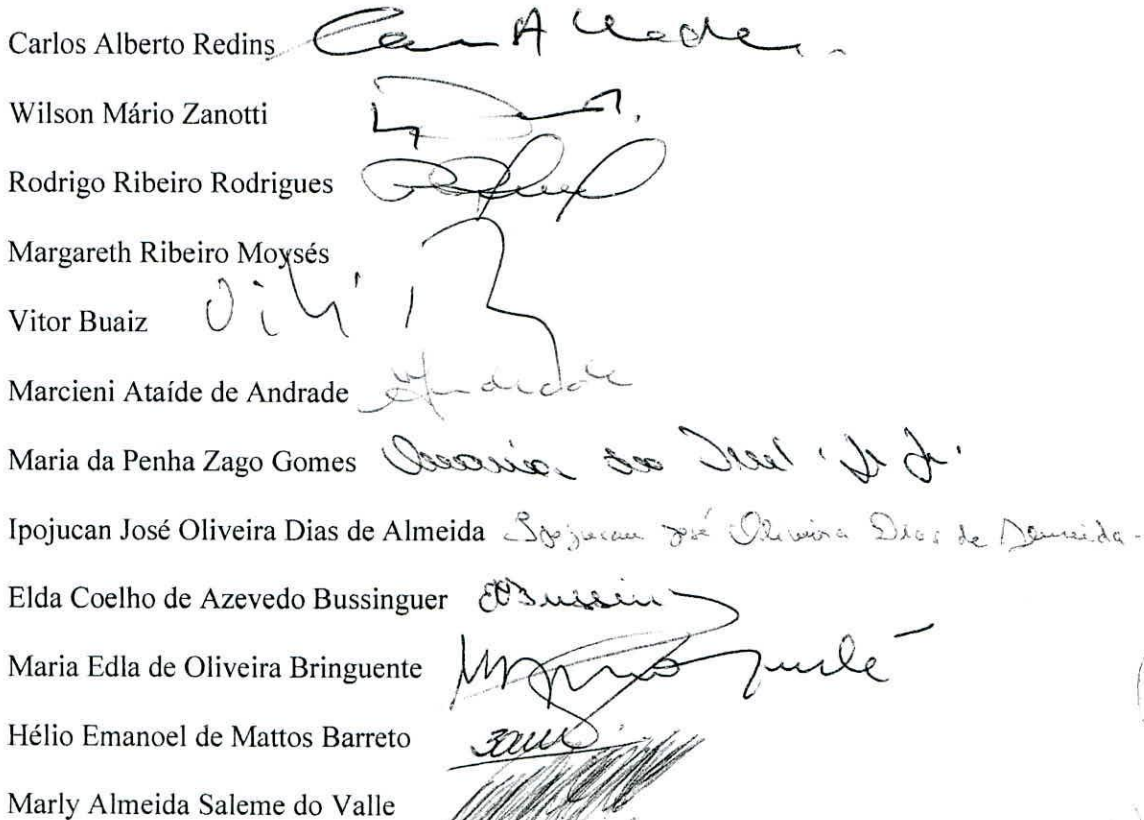 Carlos Alberto Redins
Wilson Mário Zanotti
Rodrigo Ribeiro Rodrigues
Margareth Ribeiro Moysés
Vitor Buaiz
Marcieni Ataíde de Andrade Andrade
Maria da Penha Zago Gomes Maria da
Ipojucan José Oliveira Dias de Almeida Ipojucan José Oliveira Dias de Almeida
Elda Coelho de Azevedo Bussinguer
Maria Edla de Oliveira Bringuente
Hélio Emanoel de Mattos Barreto
Marly Almeida Saleme do Valle